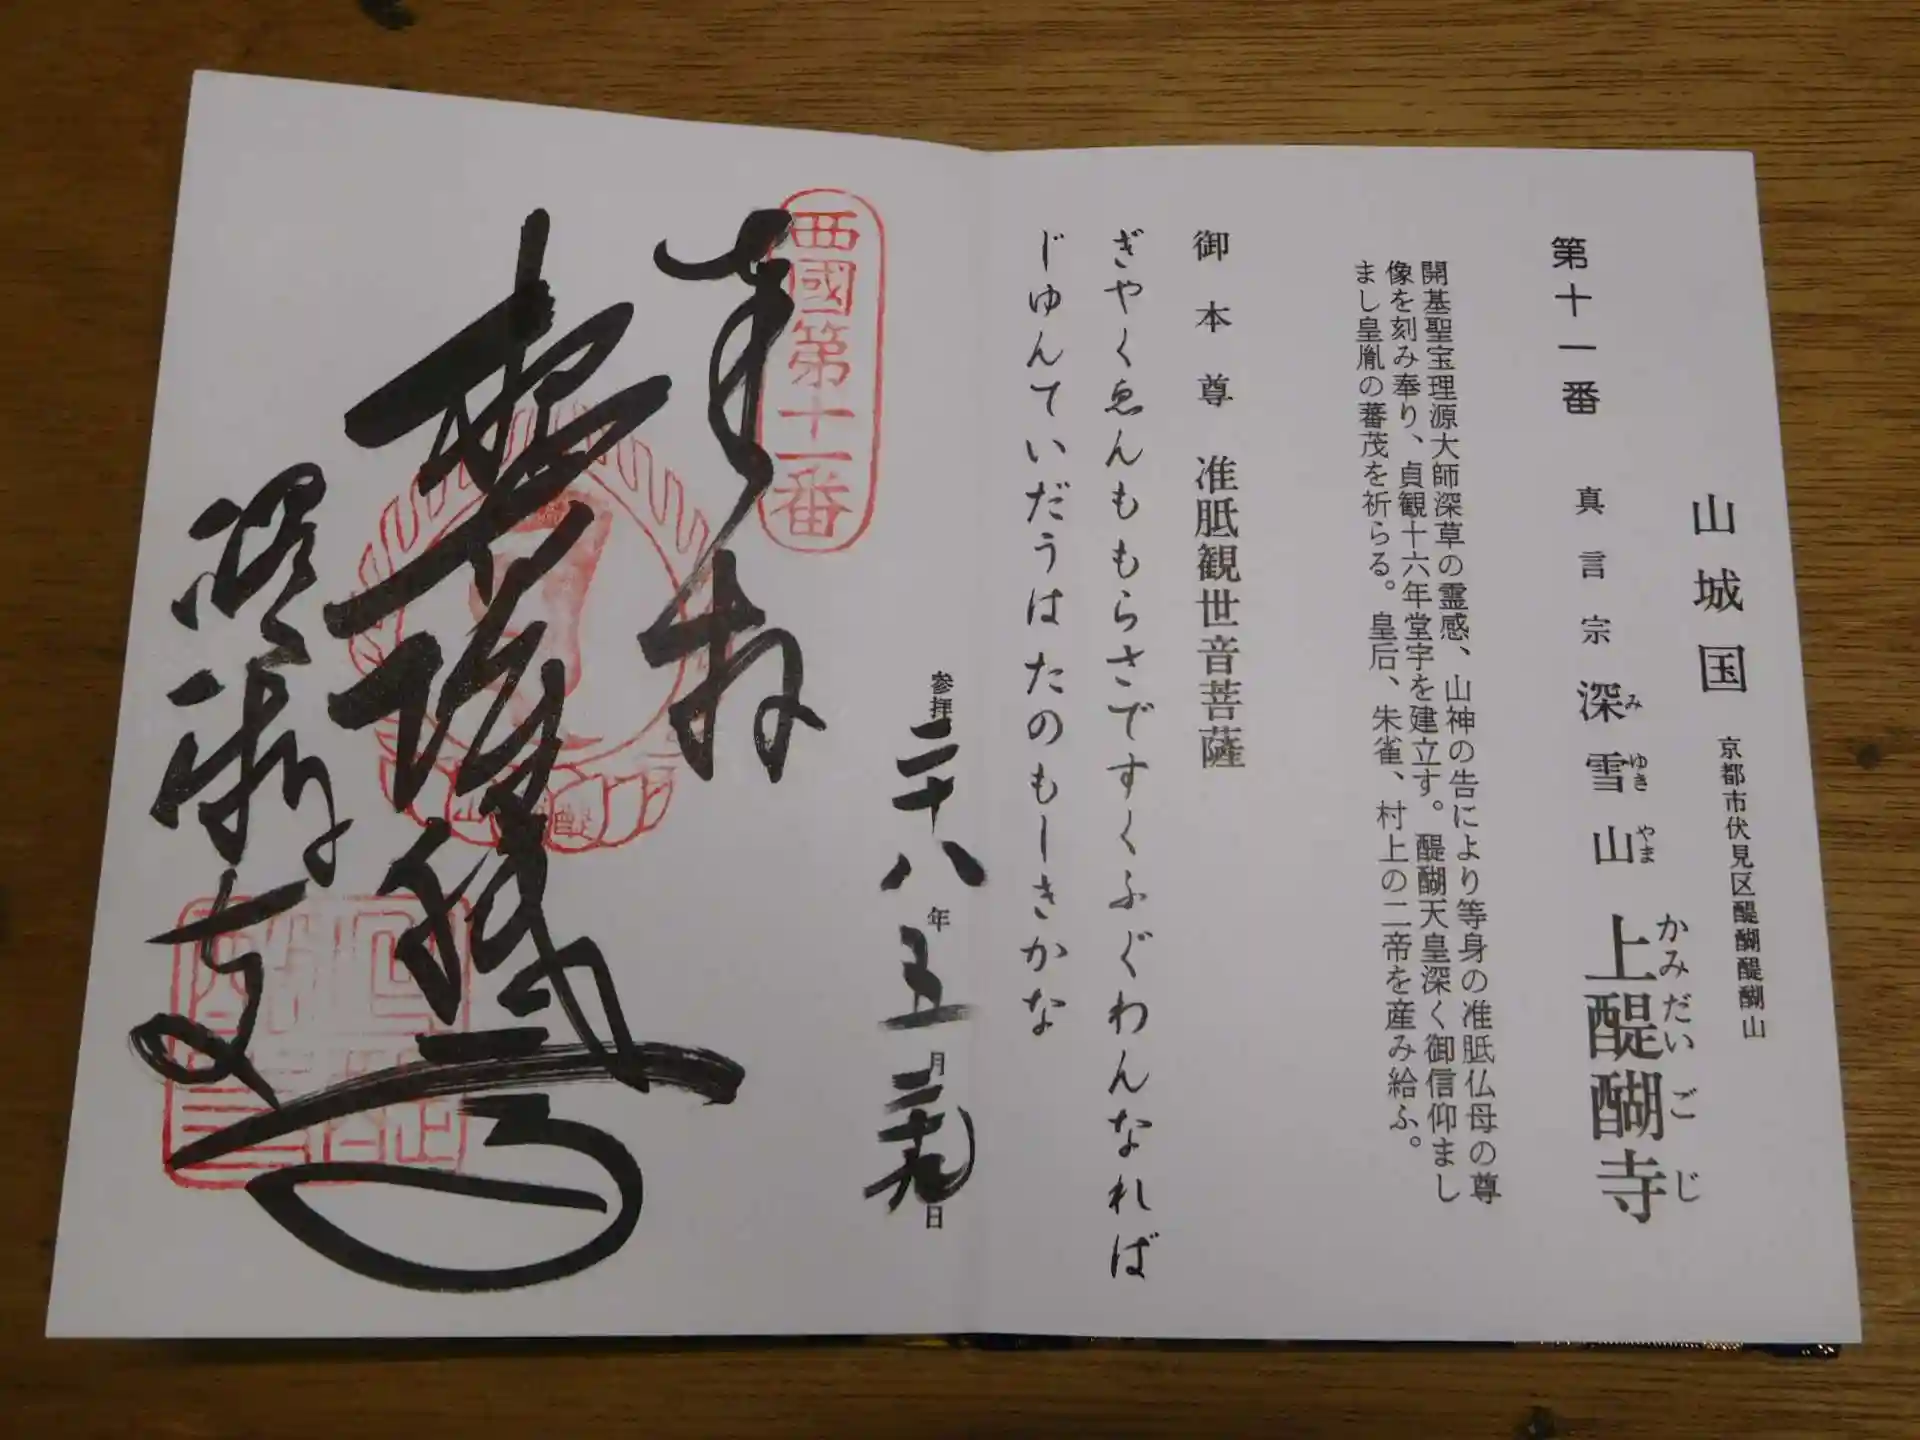 山城国 京都市伏見区醍醐醍醐山
第十一番 真言宗 深雪山 上醍醐寺
みゆきやま かみだいごじ
開基聖宝理源大師深草の霊感、山神の告により等身の准胝仏母の尊
像を刻み奉り、貞観十六年堂宇を建立す。醍醐天皇深く御信仰まし
まし皇胤の蕃茂を祈らる。皇后、朱雀、村上の二帝を産み給ふ。
御本尊 准胝観世音菩薩
ぎやくゑんももらさですくふぐわんなれば
じゆんていだうはたのもしきかな
参拝 二十八年五月二十九日
西國第十一番
奉拝
醍醐寺